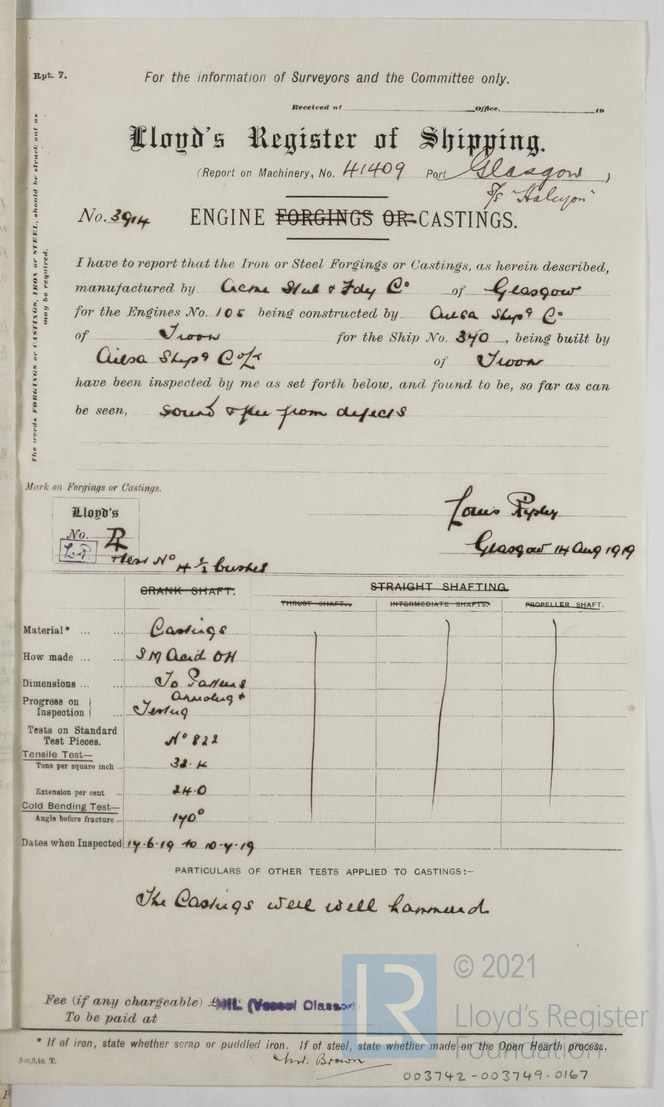 Rpt. 7.
For the information of Surveyors and the Committee only.
Received at Office, 19
Lloyd's Register of Shipping.
(Report on Machinery, No. 41409 Port Glasgow )
S/S "Halcyon"
No. 3914 ENGINE FORGINGS OR CASTINGS.
The words FORGINGS or CASTINGS, IRON or STEEL, should be struck out as may be required.
I have to report that the Iron or Steel Forgings or Castings, as herein described,
manufactured by Acme Steel & Fdy Co of Glasgow
for the Engines No. 105 being constructed by Ailsa Shipg Co
of Troon for the Ship No. 340, being built by
Ailsa Shipg Co Ld of Troon
have been inspected by me as set forth below, and found to be, so far as can
be seen, sound & free from defects
Mark on Forgings or Castings.
Lloyd's
No.
L.R.
Test No 4 ½ bushes
Louis Ripley
Glasgow 14 Aug 1919
CRANK SHAFT. STRAIGHT SHAFTING.
THRUST SHAFT. INTERMEDIATE SHAFTS. PROPELLER SHAFT.
Material* ... ... Castings
How made ... ... S M Acid OH
Dimensions ... ... To Pattens
Progress on Inspection Annealing & Testing
Tests on Standard Test Pieces. No 822
Tensile Test—
Tons per square inch .. 32.4
Extension per cent ... 24.0
Cold Bending Test—
Angle before fracture ... 170°
Dates when Inspected 17.6.19 to 10.7.19
PARTICULARS OF OTHER TESTS APPLIED TO CASTINGS:—
The Castings were well hammered
Fee (if any chargeable) £ NIL (Vessel Classed)
To be paid at
* If of iron, state whether scrap or puddled iron. If of steel, state whether made on the Open Hearth process.
Brown
003742-003749-0167
© 2021
LR
Lloyd's Register
Foundation